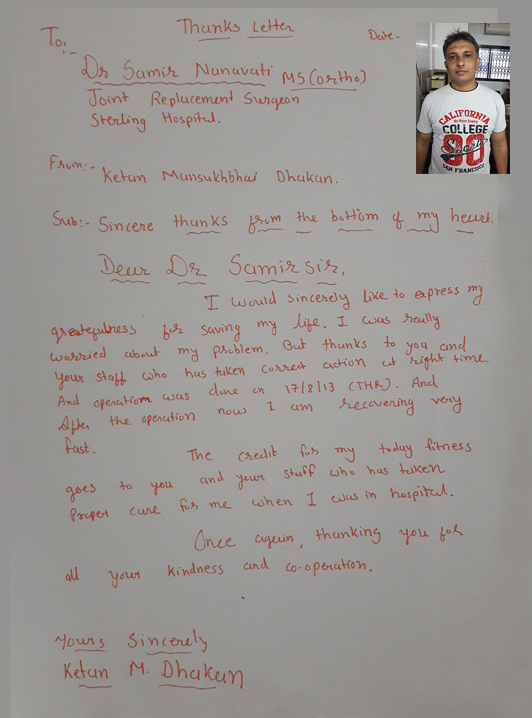 Thanks Letter
To:-
Date-
Dr Samir Nanavati MS (Ortho)
Joint Replacement Surgeon
Sterling Hospital.
From:-
Ketan Mansukhbhai Dhakan.
Sub:- Sincere thanks from the bottom of my heart.
Dear Dr Samir sir,
I would sincerely like to express my
greatefulness for saving my life. I was really
worried about my problem. But thanks to you and
your staff who has taken correct action at right time.
And operation was done on 17/8/13 (THR). And
After the operation now I am recovering very
fast.
The credit for my today fitness
goes to you and your staff who has taken
Proper care for me when I was in hospital.
Once again, thanking you for
all your kindness and co-operation.
Yours Sincerely
Ketan M. Dhakan
CALIFORNIA
COLLEGE
Sports
90
SAN FRANCISCO